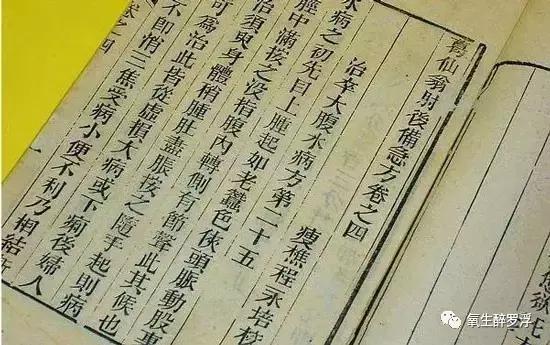 葛仙翁肘後備急方卷之四
瘦樵程永培校
治卒大腹水病方第二十五
水病之初先目上腫起如老蠶色俠頭脈動股裏
脛中滿按之没指腹內轉側有節聲此其候也
治須臾身體稍腫肚盡脹按之隨手起則病
可爲治此皆從虛損大病或下痢後婦人
不即消三焦受病小便不利乃相結漸
卷之四
一
氧生醉罗浮